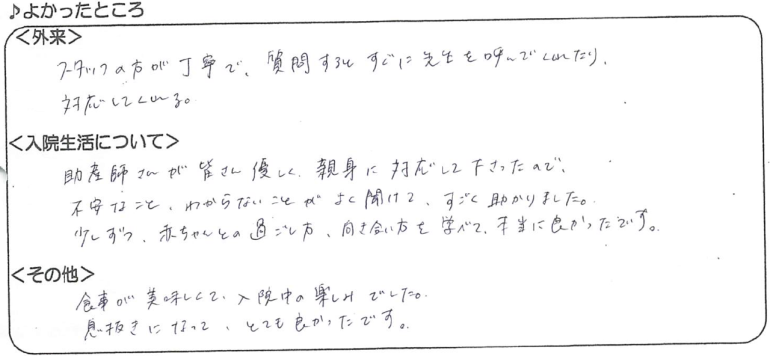 ♪よかったところ
＜外来＞
スタッフの方が丁寧で、質問するとすぐに先生を呼んでくれたり、
対応してくれる。
＜入院生活について＞
助産師さんが皆さん優しく、親身に対応して下さったので、
不安なこと、わからないことがよく聞けて、すごく助かりました。
少しずつ、赤ちゃんとの過ごし方、向き合い方を学べて、本当に良かったです。
＜その他＞
食事が美味しくて、入院中の楽しみでした。
息抜きになって、とても良かったです。